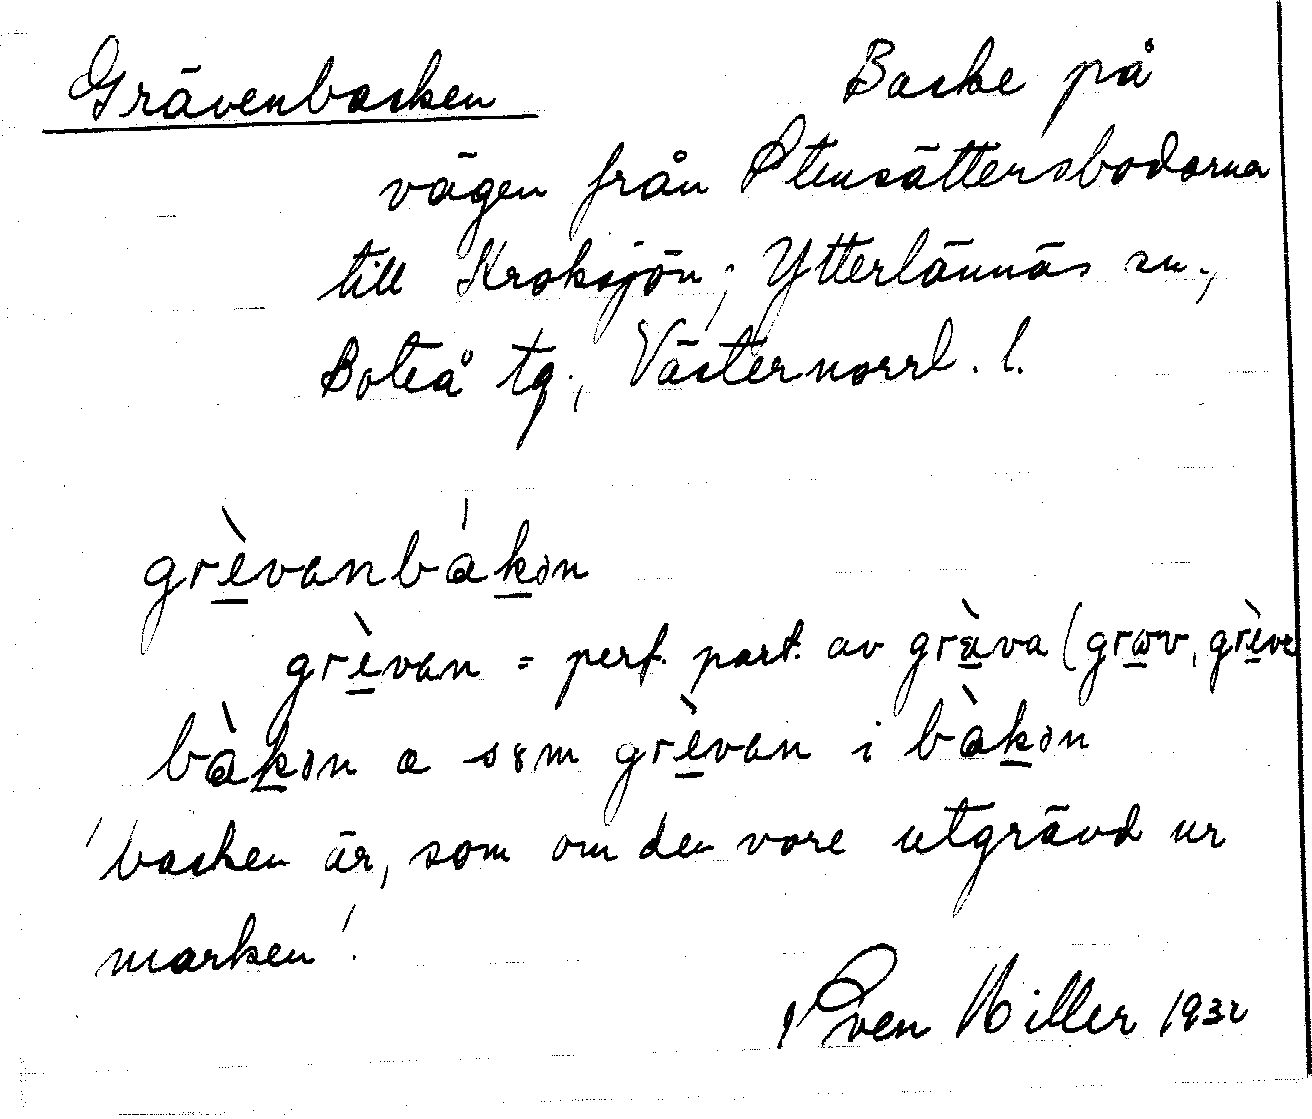 Grävenbacken Backe på
vägen från Stensättersbodarna
till Kroksjön, Ytterlännäs sn.,
Boteå tg., Västernorrl. l.
grè̱vanbák̲ən
grè̱van = perf. part. av grà̱va (gra̱v, grè̱ve
bàk̲ən a sɷm grè̱van i bàk̲ən
'backen är, som om den vore utgrävd ur
marken'.
Sven Hiller 1932